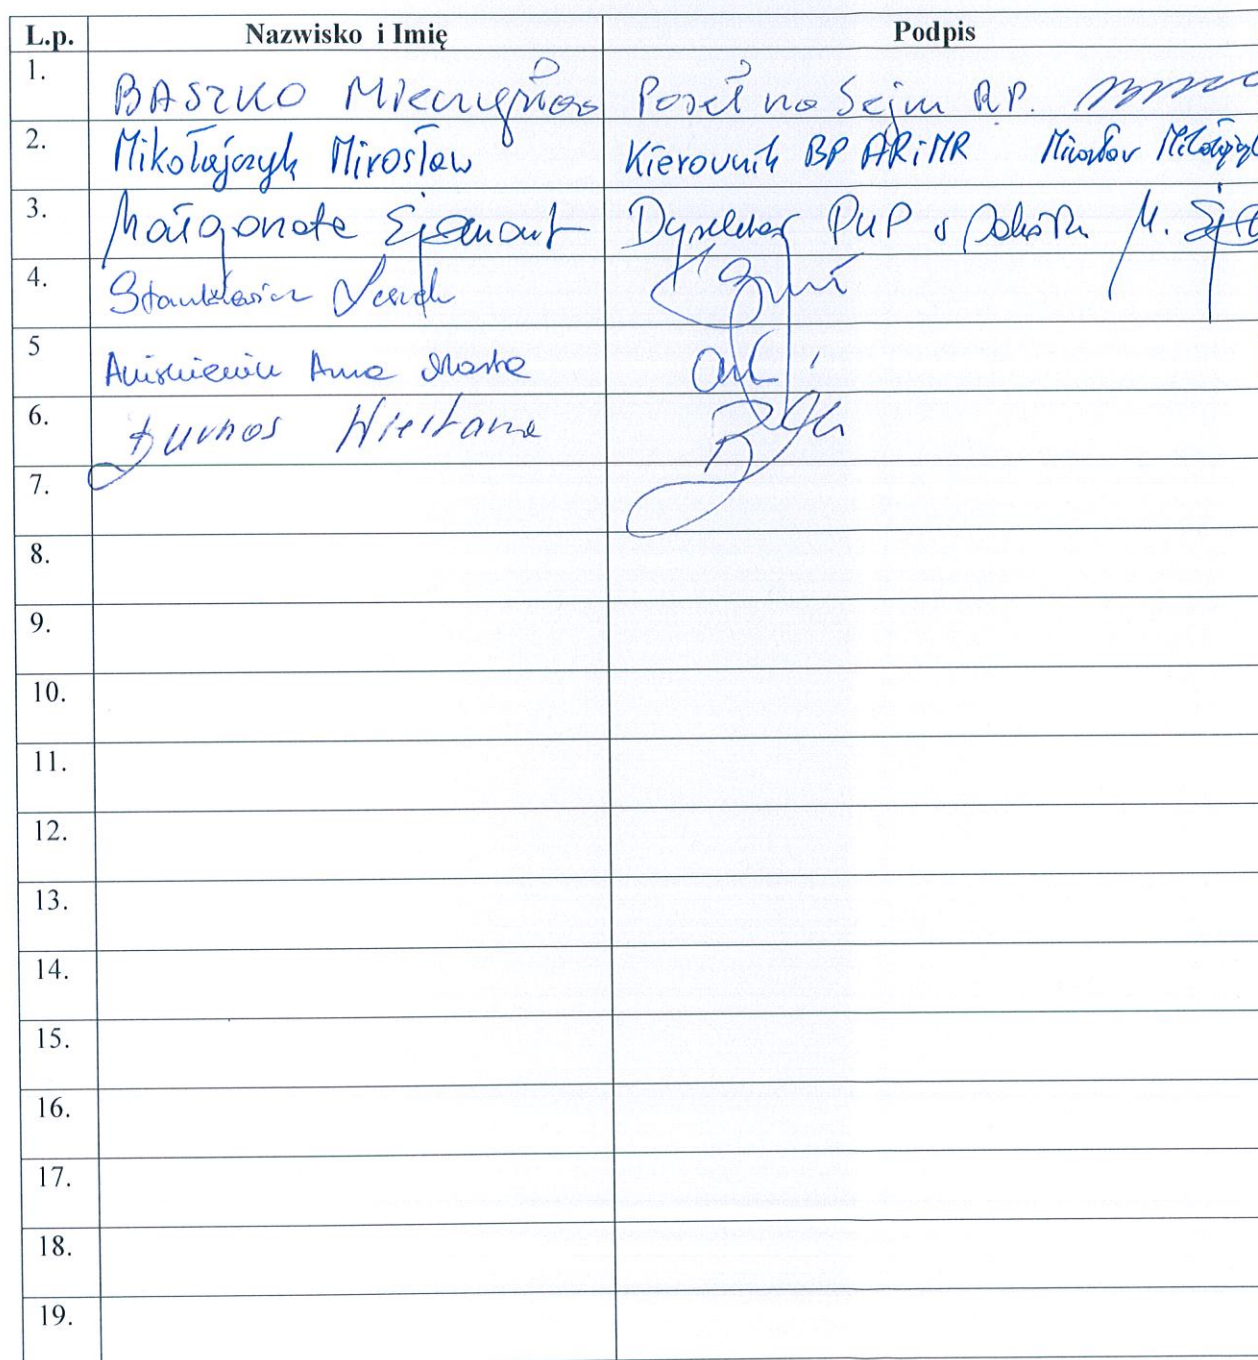 L.p. Nazwisko i Imię Podpis
1. BASZKO Mieczysław Poseł na Sejm RP.
2. Mikołajczyk Mirosław Kierownik BP ARiMR Mirosław Mikołajczyk
3. Małgorzata Dyrektor PUP w M.
4. Stankiewicz Leszek
5 Anna Marta
6. Durnos
7.
8.
9.
10.
11.
12.
13.
14.
15.
16.
17.
18.
19.